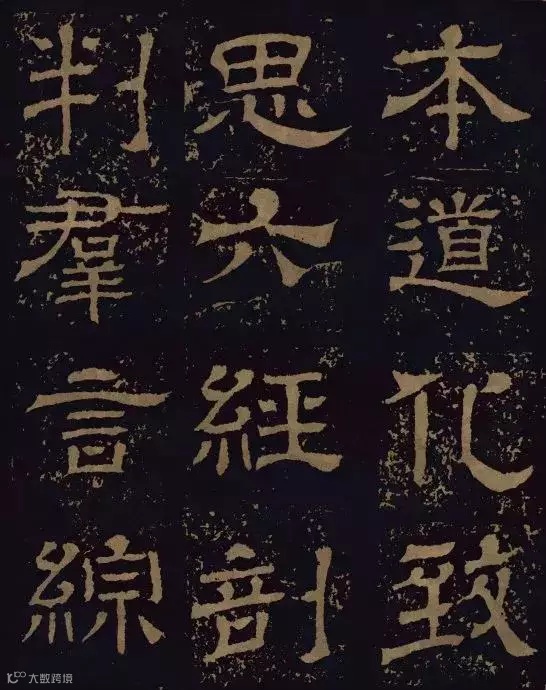 本道化致
思六經剖
判羣言綜
大数跨境